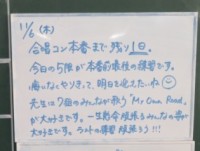 11/6(木)
合唱コン本番まで残り1日。
今日の5限が本番前最後の練習です。
悔いなくやりきって、明日を迎えたいね☺
先生は7組のみんなが歌う「My Own Road」
が大好きです。一生懸命頑張るみんなの姿が
大好きです。ラストの練習頑張ろう!!!